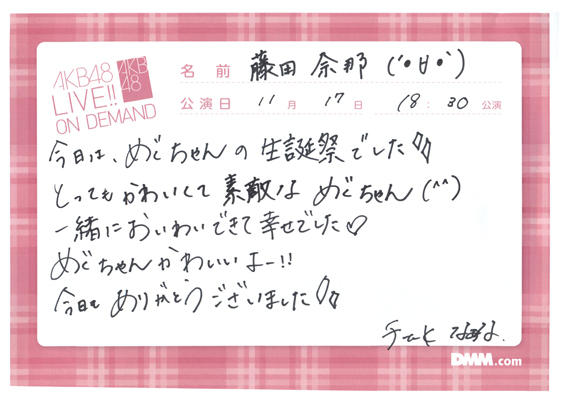 AKB48
LIVE!!
ON DEMAND
AKB
48
名 前 藤田 奈那 (´•∀•`)
公演日 11月 17日 18:30公演
今日は、めぐちゃんの生誕祭でした♪♪
とってもかわいくて素敵なめぐちゃん(^^)
一緒においわいできて幸せでした♡
めぐちゃんかわいいよー!!
今日もありがとうございました♪♪
DMM.com